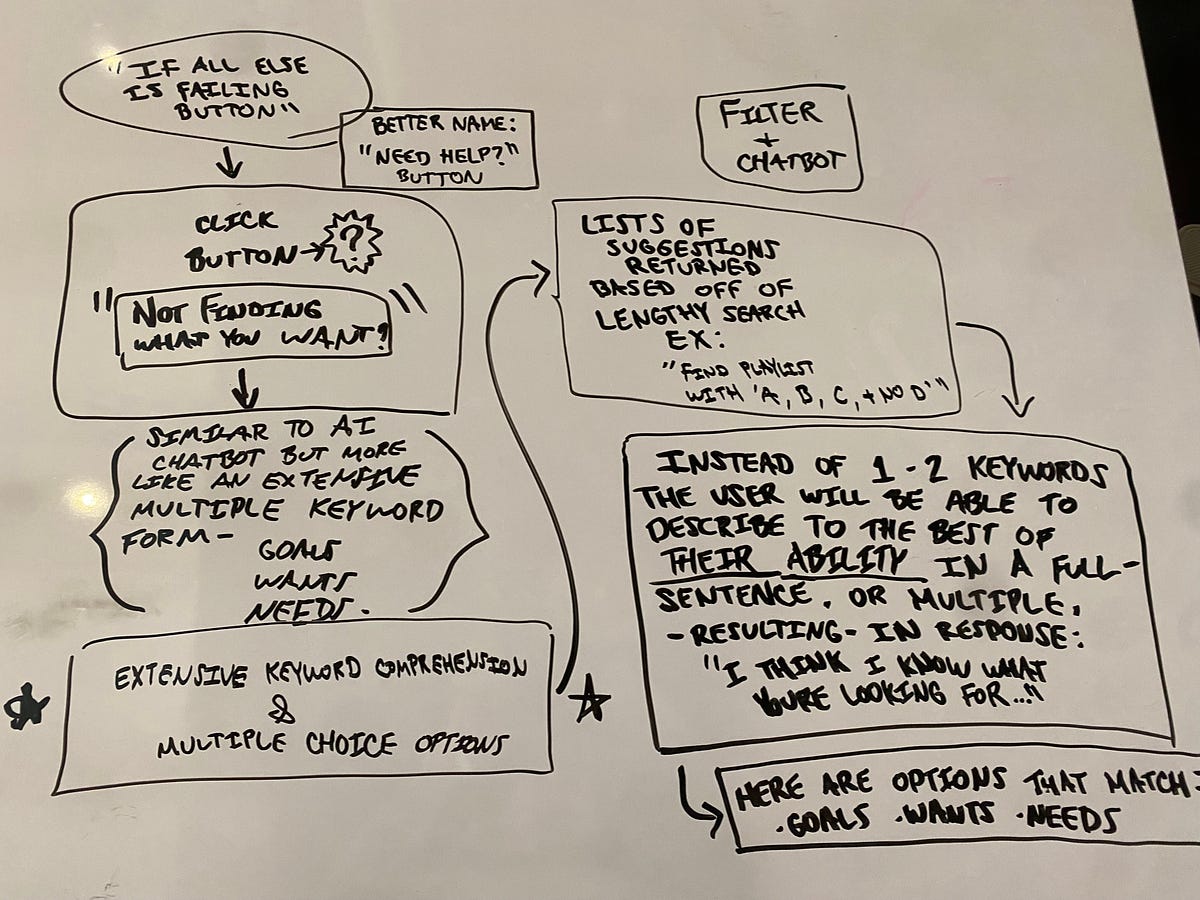 "IF ALL ELSE
IS FAILING
BUTTON"
BETTER NAME:
"NEED HELP?"
BUTTON
CLICK
BUTTON→ ?
"NOT FINDING
WHAT YOU WANT?"
SIMILAR TO AI
CHATBOT BUT MORE
LIKE AN EXTENSIVE
MULTIPLE KEYWORD
FORM-
GOALS
WANTS
NEEDS.
EXTENSIVE KEYWORD COMPREHENSION
&
MULTIPLE CHOICE OPTIONS
FILTER
+
CHATBOT
LISTS OF
SUGGESTIONS
RETURNED
BASED OFF OF
LENGTHY SEARCH
EX:
"FIND PLAYLIST
WITH 'A, B, C, + NO D'"
INSTEAD OF 1-2 KEYWORDS
THE USER WILL BE ABLE TO
DESCRIBE TO THE BEST OF
THEIR ABILITY IN A FULL-
SENTENCE. OR MULTIPLE.
-RESULTING- IN RESPONSE:
"I THINK I KNOW WHAT
YOURE LOOKING FOR..."
HERE ARE OPTIONS THAT MATCH-
.GOALS .WANTS .NEEDS